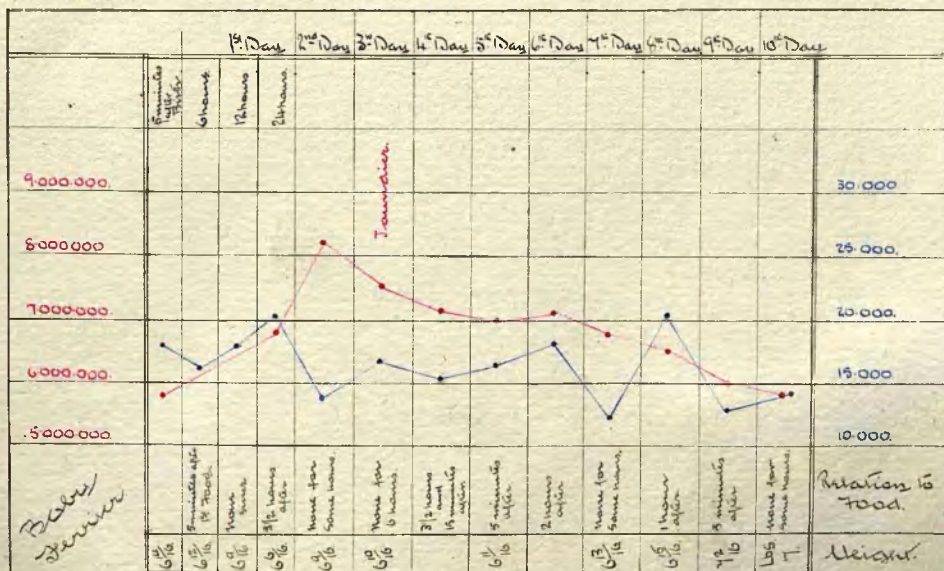 1st Day 2nd Day 3rd Day 4th Day 5th Day 6th Day 7th Day 8th Day 9th Day 10th Day
5 minutes after Birth.
6 hours.
12 hours
24 hours.
Jaundice.
9.000.000.
8.000000
7000000.
6.000.000.
.5000.000.
30.000
25.000.
20.000
15.000.
10.000.
5 minutes after 1st Food.
None since
3 1/2 hours after
None for some hours.
None for 6 hours.
3 1/2 hours and 15 minutes after
5 minutes after
2 hours after
None for some hours.
1 hour after
5 minutes after
None for some hours.
Relation to Food.
Baby
Weight.
Lbs. 7.